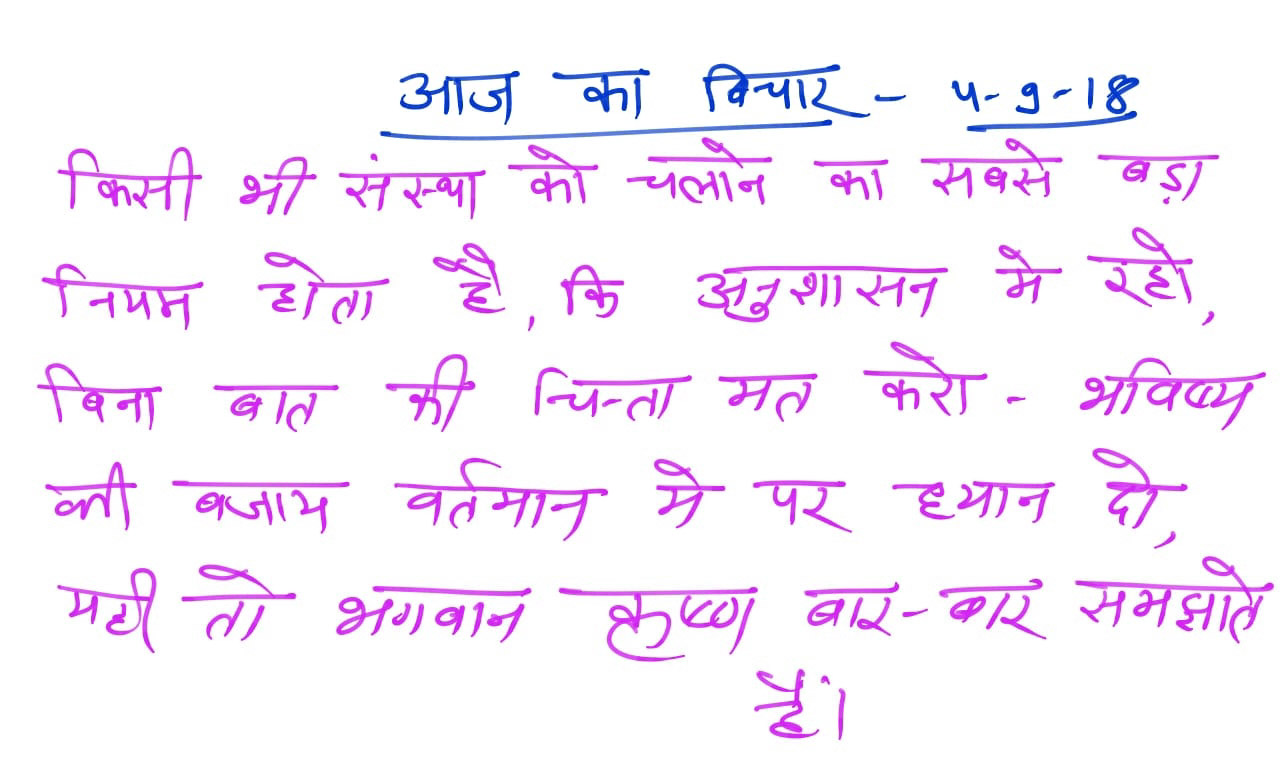 आज का विचार - 4-9-18
किसी भी संस्था को चलाने का सबसे बड़ा
नियम होता है, कि अनुशासन मे रहो,
बिना बात की चिन्ता मत करो - भविष्य
की बजाय वर्तमान मे पर ध्यान दो,
यही तो भगवान कृष्ण बार-बार समझाते
हैं।